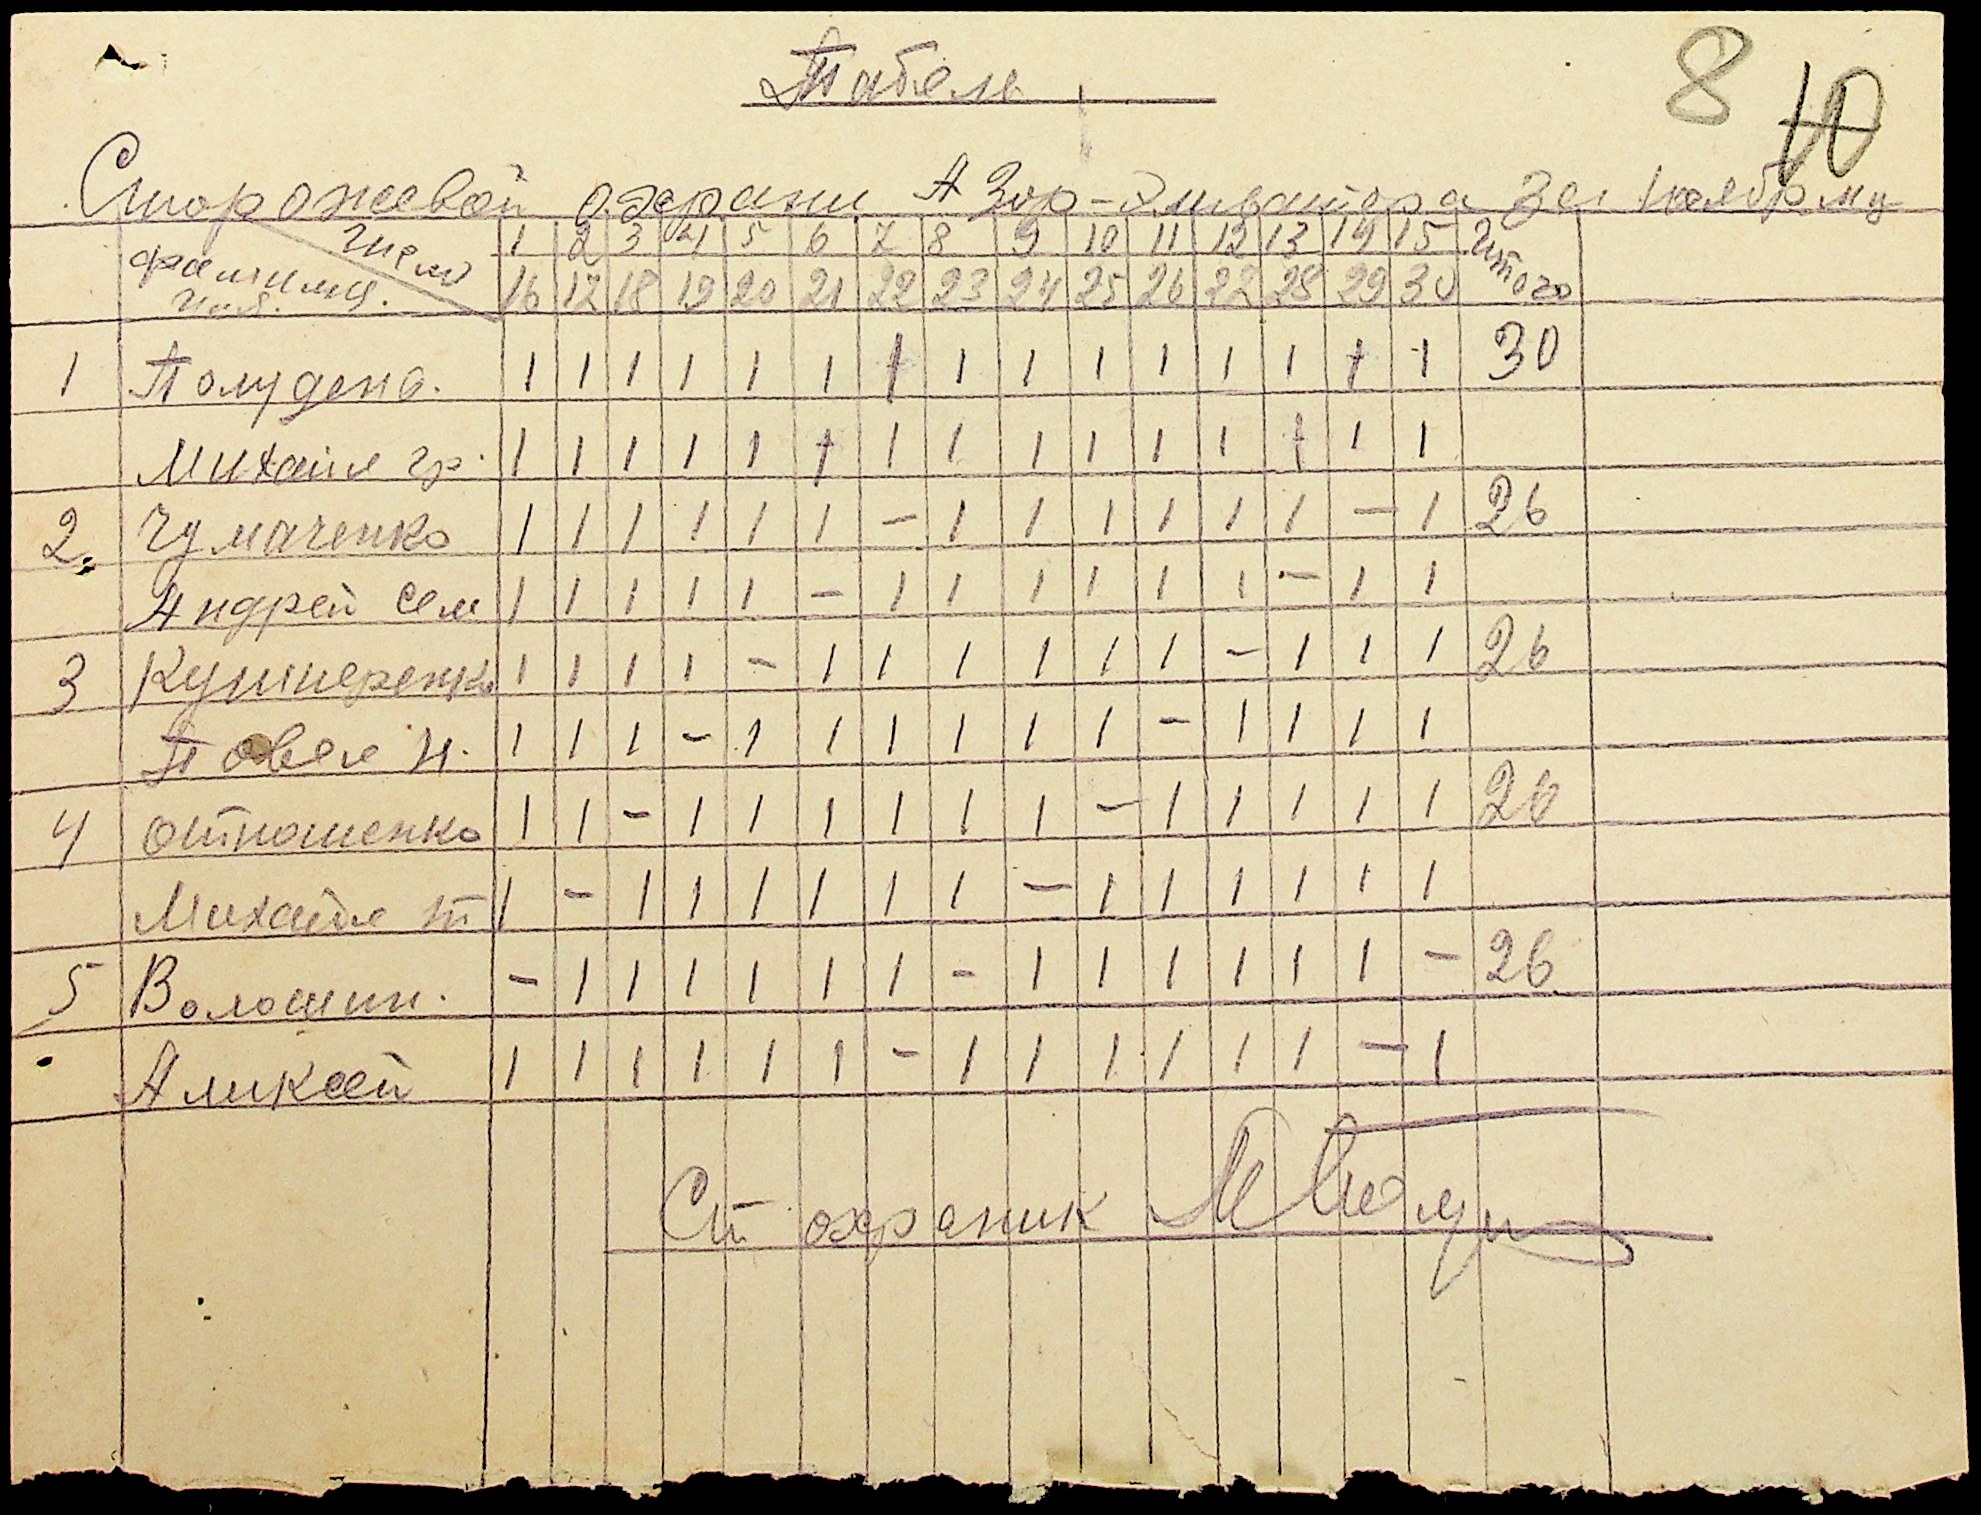 Табель
8 10
Сторожевой охрани Азор-Эливатора за ноябрь мц
число 1 2 3 4 5 6 7 8 9 10 11 12 13 14 15 Итого
фамилия 16 17 18 19 20 21 22 23 24 25 26 27 28 29 30
1 Полудень. 1 1 1 1 1 1 † 1 1 1 1 1 1 † 1 30
Михаил гр. 1 1 1 1 1 † 1 1 1 1 1 1 † 1 1
2. Чумаченко 1 1 1 1 1 1 – 1 1 1 1 1 1 – 1 26
Андрей Сем 1 1 1 1 1 – 1 1 1 1 1 1 – 1 1
3 Кушнеренко 1 1 1 1 – 1 1 1 1 1 1 – 1 1 1 26
Повел Н. 1 1 1 – 1 1 1 1 1 1 – 1 1 1 1
4 Отношенко 1 1 – 1 1 1 1 1 1 – 1 1 1 1 1 26
Михаил 1 – 1 1 1 1 1 1 – 1 1 1 1 1 1
5 Волошин. – 1 1 1 1 1 1 – 1 1 1 1 1 1 – 26
Аликсей 1 1 1 1 1 1 – 1 1 1 1 1 1 – 1
Ст охраник